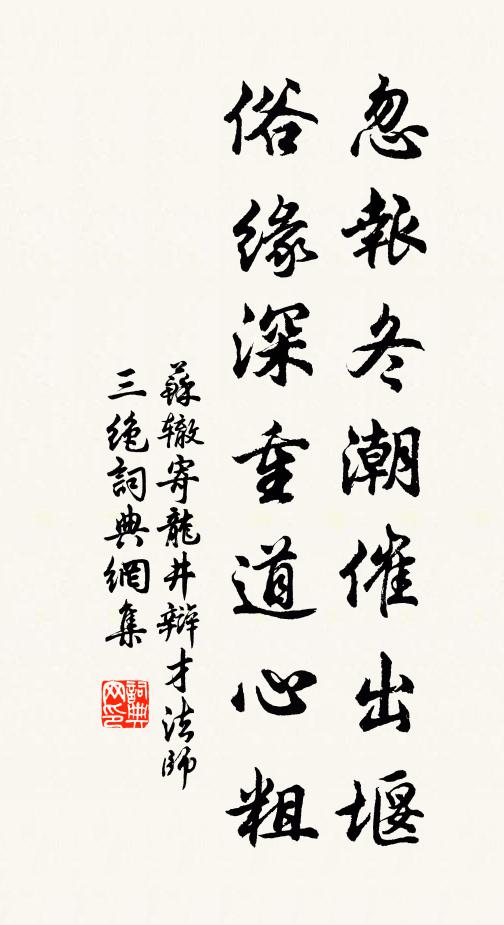 忽報冬潮催出堰
俗緣深重道心粗
蘇轍寄龍井辯才法師
三絶詞典網集
詞典網印